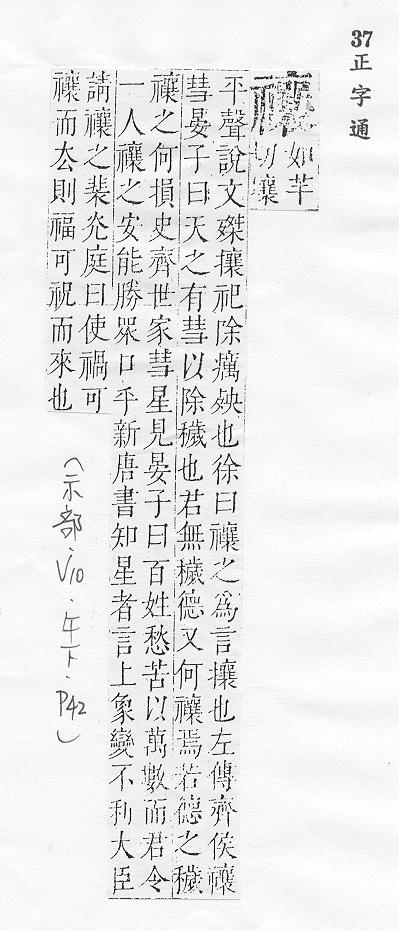 37
正字通
禳
如羊
切壤
平聲說文磔攘祀除癘殃也徐曰禳之爲言攘也左傳齊侯禳
彗晏子曰天之有彗以除穢也君無穢德又何禳焉若德之穢
禳之何損史齊世家彗星見晏子曰百姓愁苦以萬數而君令
一人禳之安能勝眾口乎新唐書知星者言上象變不利大臣
請禳之裴灮庭曰使禍可
禳而厺則福可祝而來也
(示部·V10·午下·P42)